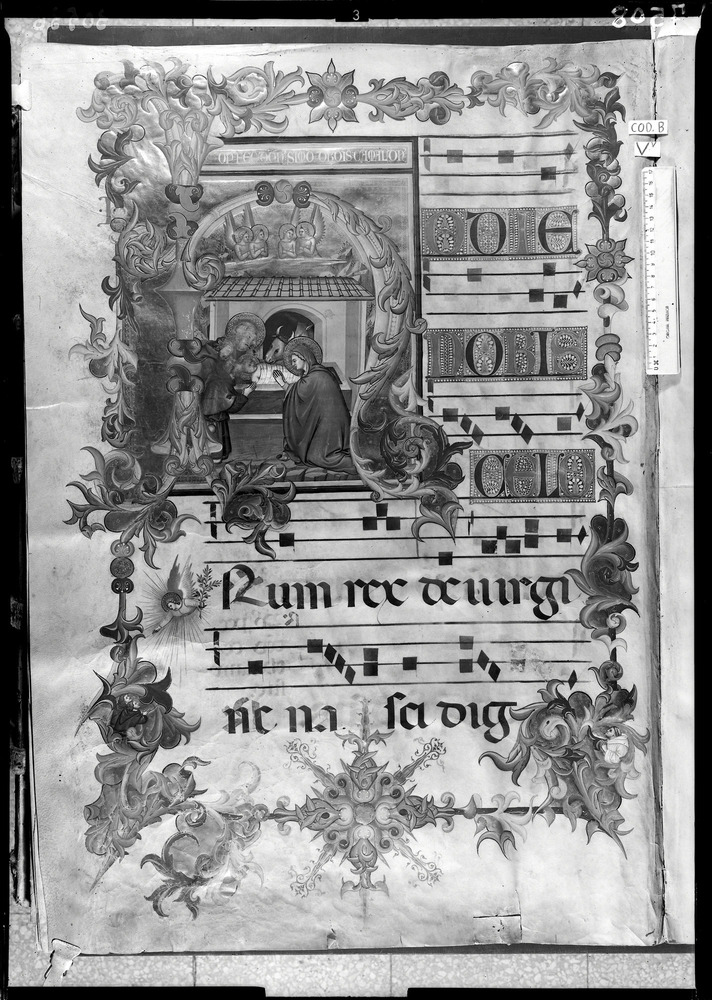 3
7508
COD. B
V
ODIE
NOBIS
CELO
Rum rex de uirgi
ne na sci dig